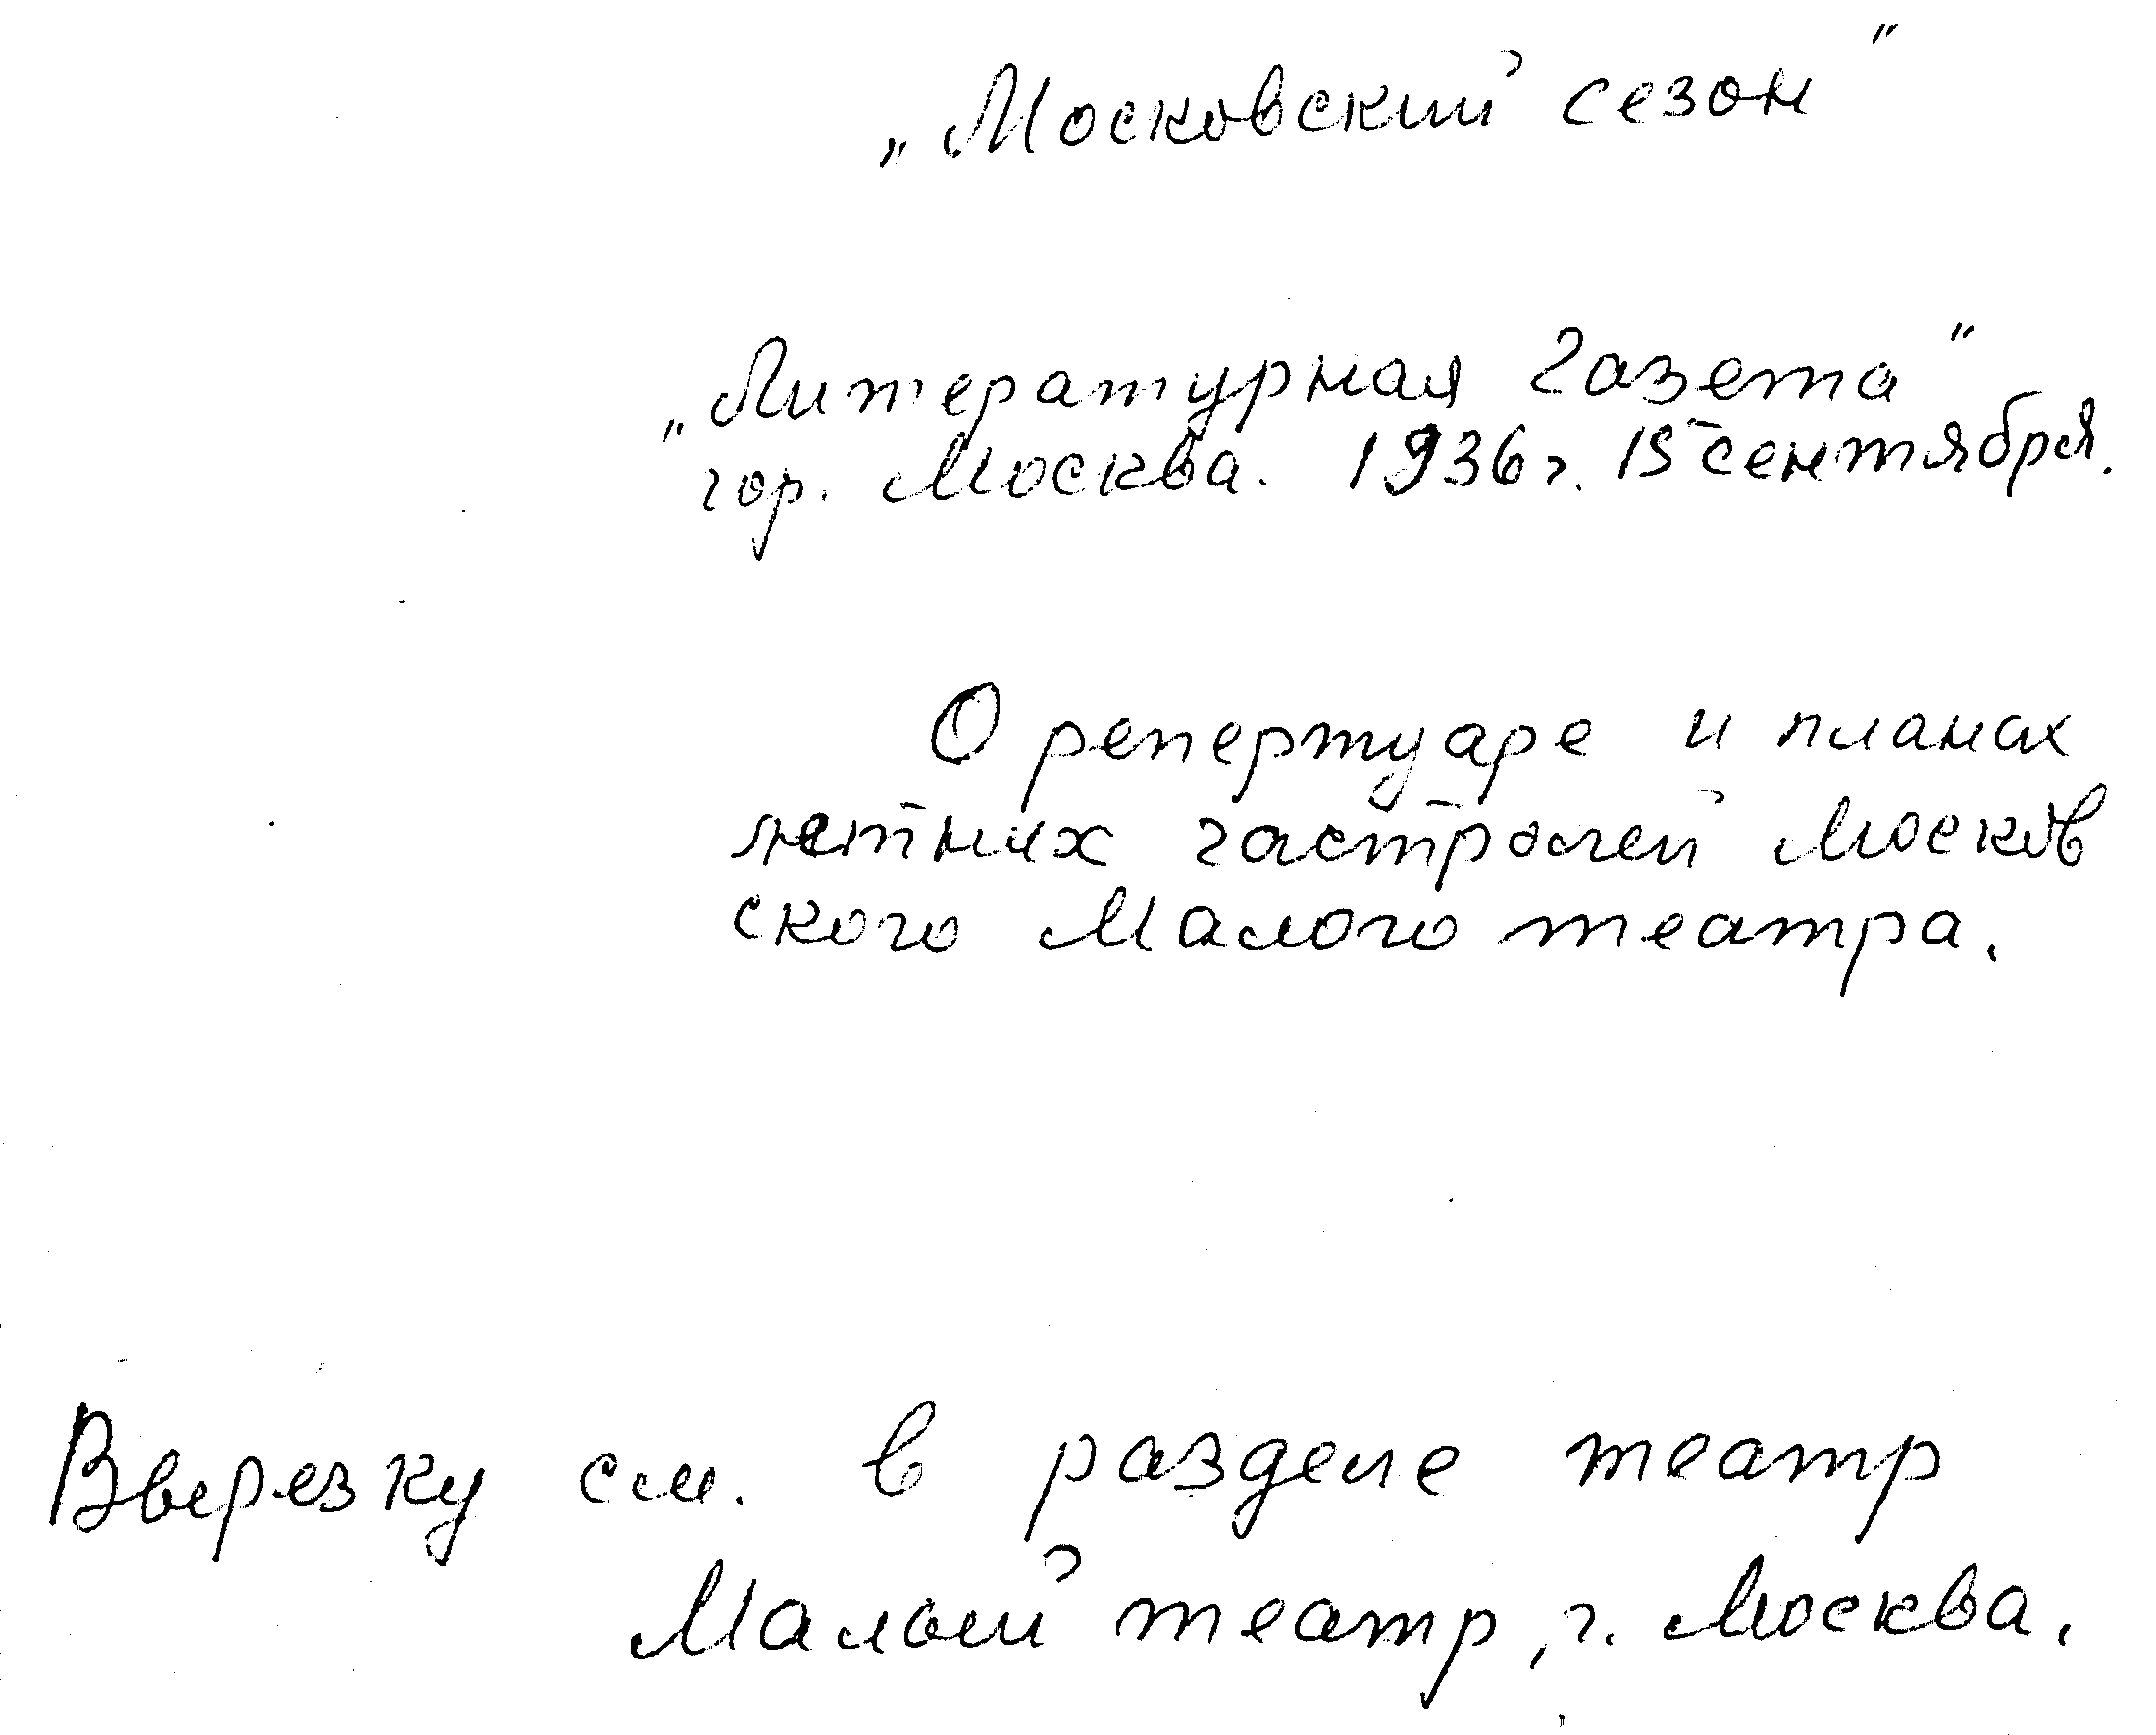 „Московский сезон"
„Литературная газета"
гор. Москва. 1936 г. 15 сентября.
О репертуаре и планах
летних гастролей Москов
ского Малого театра.
Вырезку см. в разделе театр
Малый театр, г. Москва.